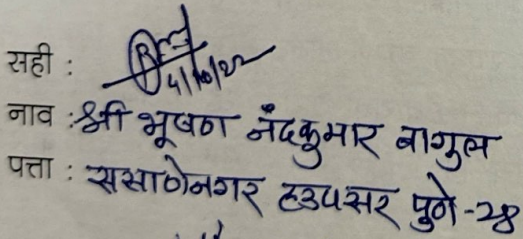 सही :
नाव : श्री भूषण नंदकुमार बागुल
पत्ता : ससाणेनगर हडपसर पुणे-28